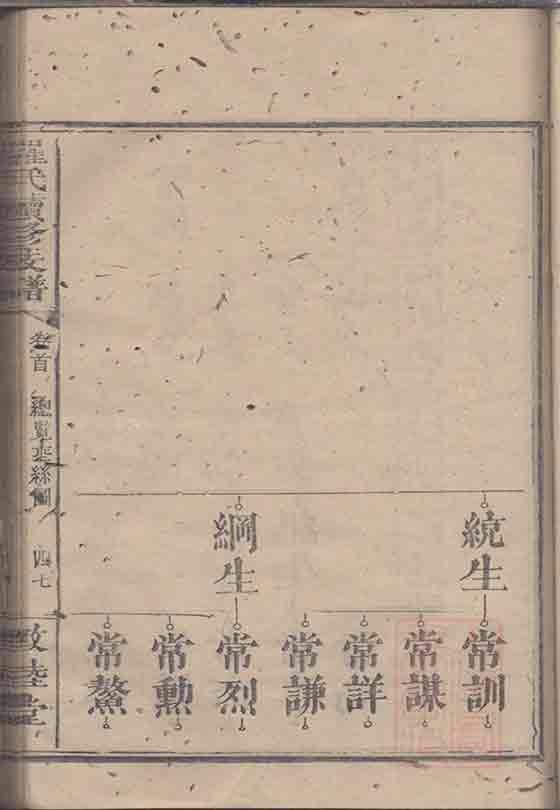 統生
綱生
常訓
常謀
常詳
常謙
常烈
常勳
常鰲
羅氏續修支譜
卷首
總覽垂絲圖
四七
敦睦堂